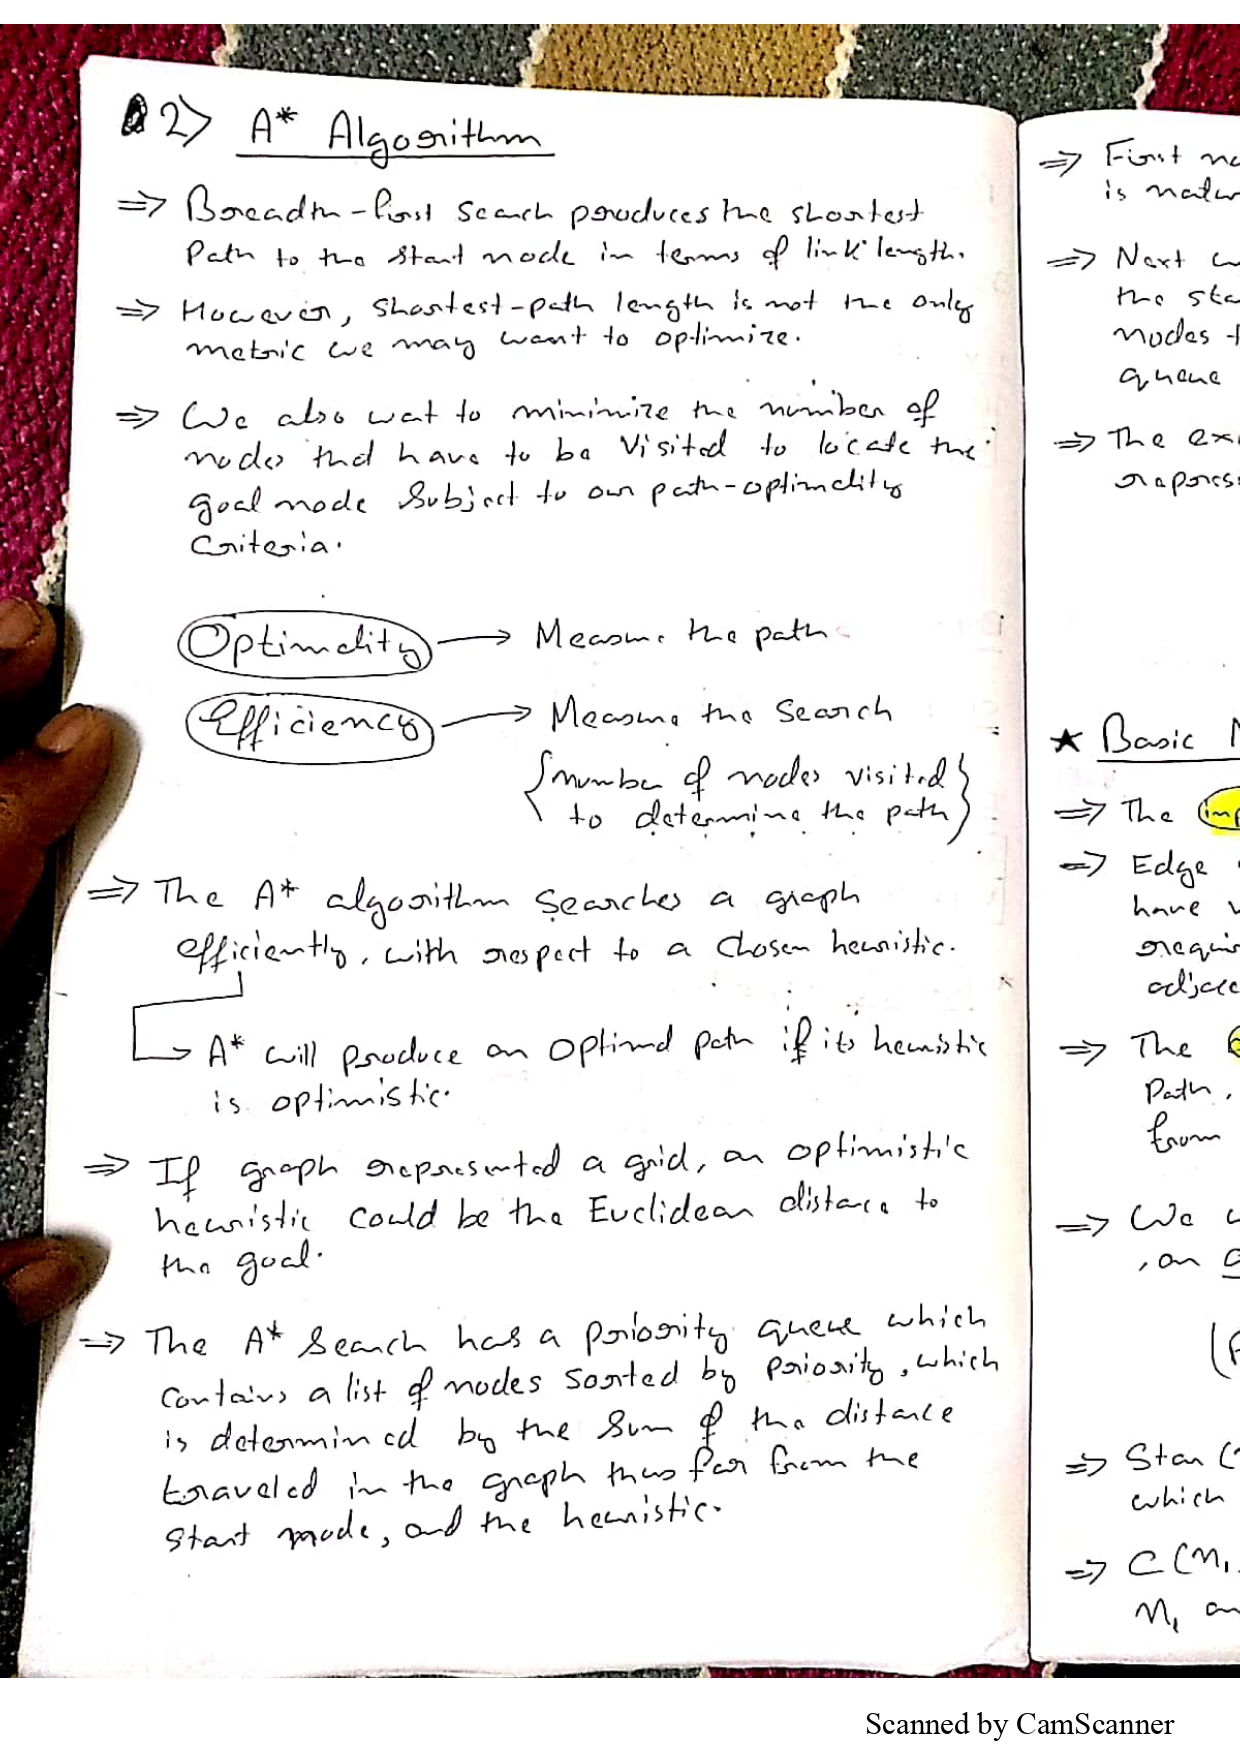 2> A* Algorithm
⇒ Breadth-first search produces the shortest
Path to the start node in terms of link length.
⇒ However, shortest-path length is not the only
metric we may want to optimize.
⇒ We also wat to minimize the number of
nodes that have to be visited to locate the
goal node subject to our path-optimality
criteria.
Optimality → Measure the path
Efficiency → Measure the search
{number of nodes visited
to determine the path}
⇒ The A* algorithm searches a graph
efficiently, with respect to a chosen heuristic.
↳ A* will produce an optimal path if its heuristic
is optimistic.
⇒ If graph represented a grid, an optimistic
heuristic could be the Euclidean distance to
the goal.
⇒ The A* search has a priority queue which
contains a list of nodes sorted by priority, which
is determined by the sum of the distance
traveled in the graph thus far from the
start node, and the heuristic.
⇒ First
is
⇒ Next
the
nodes
queue
⇒ The
★ Basic
⇒ The
⇒ Edge
have
⇒ The
Path,
from
⇒ We
, on
⇒ Star
which
⇒ C(n1
n1
Scanned by CamScanner